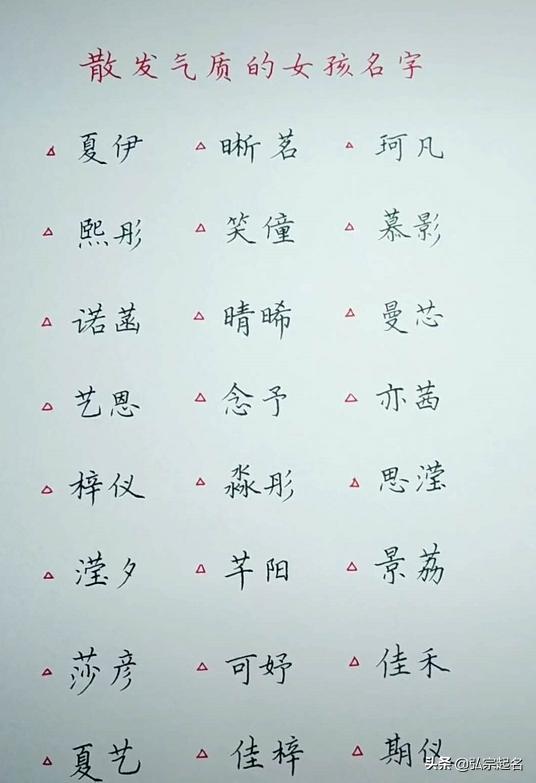 散发气质的女孩名字
△ 夏伊 △ 晰茗 △ 珂凡
△ 熙彤 △ 笑僮 △ 慕影
△ 诺菡 △ 晴晞 △ 曼芯
△ 艺恩 △ 念予 △ 亦茜
△ 梓仪 △ 淼彤 △ 思滢
△ 滢夕 △ 芊阳 △ 景荔
△ 莎彦 △ 可妤 △ 佳禾
△ 夏艺 △ 佳梓 △ 期仪
头条 @弘宗起名